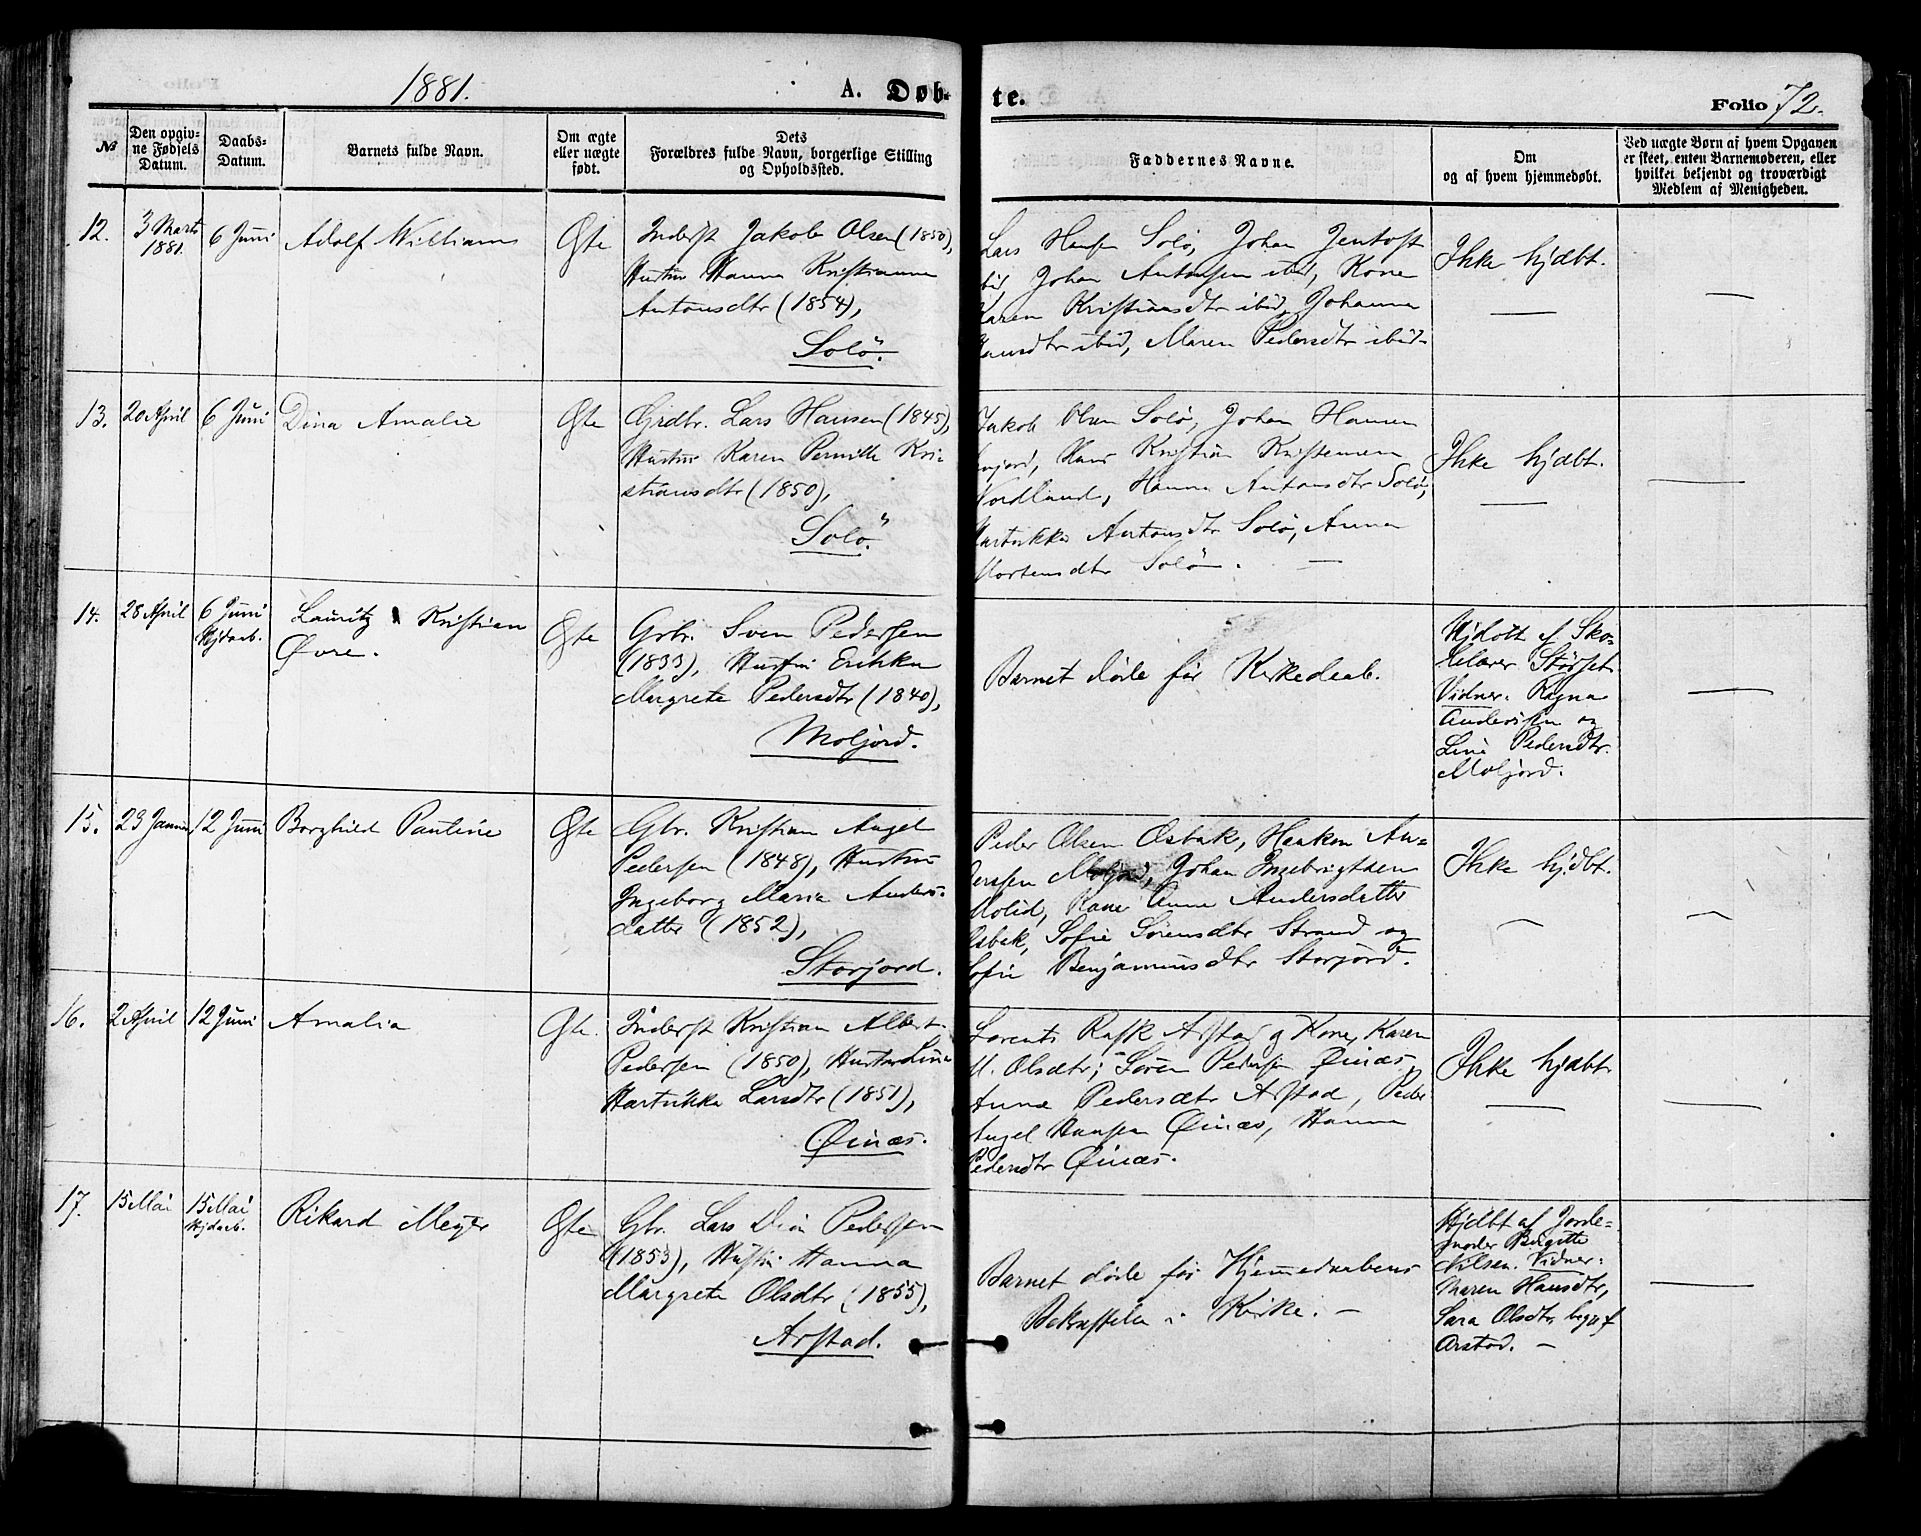 1881.
A. Døb-
te.
Folio 72.
№
Den opgiv-
ne Fødsels
Datum.
Daabs-
Datum.
Barnets fulde Navn.
Om ægte
eller uægte
født.
Dets
Forældres fulde Navn, borgerlige Stilling
og Opholdssted.
Faddernes Navne.
Om
og af hvem hjemmedøbt.
Ved uægte Børn af hvem Opgaven
er skeet, enten Barnemoderen, eller
hvilket bekjendt og troværdigt
Medlem af Menigheden.
12.
3 Marts
1881.
6 Juni
Adolf William
Øgte
Inderst Jakob Olsen (1850),
Hustru Hanna Kristianna
Antonsdtr (1854),
Solö.
Lars Hansen Solö, Johan Jentoft
ibid, Johan Antonsen ibid, Kone
Karen Kristiansdtr ibid, Johanna
Hansdtr ibid, Maren Pedersdtr ibid.
Ikke hjdbt.
13.
20 April
6 Juni
Dina Amalie
Øgte
Grdbr. Lars Hansen (1845),
Hustru Karen Pernille Kri-
stiansdtr (1850),
Solö.
Jakob Olsen Solö, Johan Hansen
Hans Kristian Kristensen
Nordland, Hanna Antonsdtr Solö,
Hartvikka Antonsdtr Solö, Anna
Mortensdtr Solö. —
Ikke hjdbt.
14.
28 April
6 Juni
Hjdaab.
Lauritz Kristian
Øvre.
Øgte
Grbr. Sven Pedersen
(1833), Hustru Erikka
Margrete Pedersdtr (1840),
Moljord.
Barnet døde før Kirkedaab.
Hjdøbt af Sko-
lelærer Storjet.
Vidner: Ragna
Andersen og
Line Pedersdtr.
Moljord.
15.
23 Januar
12 Juni
Borghild Pauline
Øgte
Gbr. Kristian Angel
Pedersen (1848), Hustru
Ingeborg Maria Anders-
datter (1852),
Storjord.
Peder Olsen Osbak, Haakon An-
derssen Moljord, Johan Ingebrigtsen
Molid, Kone Anne Andersdatter
Osbak, Sofie Sörensdtr Strand og
Sofie Benjaminsdtr Storjord.
Ikke hjdbt.
16.
2 April
12 Juni
Amalia
Øgte.
Inderst Kristian Albert
Pedersen (1850), Hustru Lina
Hartvikka Larsdtr (1851),
Øinæs.
Lorents Rafk Arstad og Kone Karen
M. Olsdtr; Sören Pedersen Øinæs,
Anna Pedersdtr Arstad, Peder
Angel Hansen Øinæs, Hanna
Pedersdtr Øinæs.
Ikke hjdbt
17.
15 Mai
15 Mai
Hjdaab.
Rikard Meyer
Øgte
Gbr. Lars Pedersen
(1853), Hustru Hanna
Margrete Olsdtr (1855),
Arstad.
Barnet døde før Hjemmedaabens
Bekræftelse i Kirke. —
Hjdbt af Jorde-
moder Birgitte
Nilsen. Vidner:
Maren Hansdtr,
Sara Olsdtr, begge af
Arstad. —